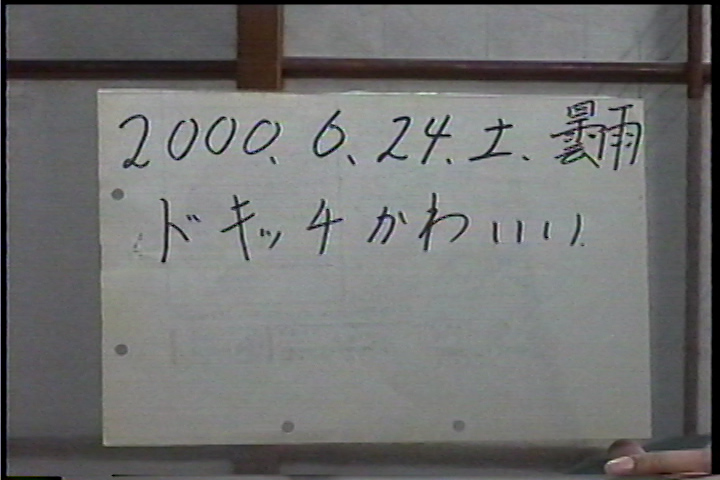 2000、6、24、土、曇雨
ドキッチかわいい